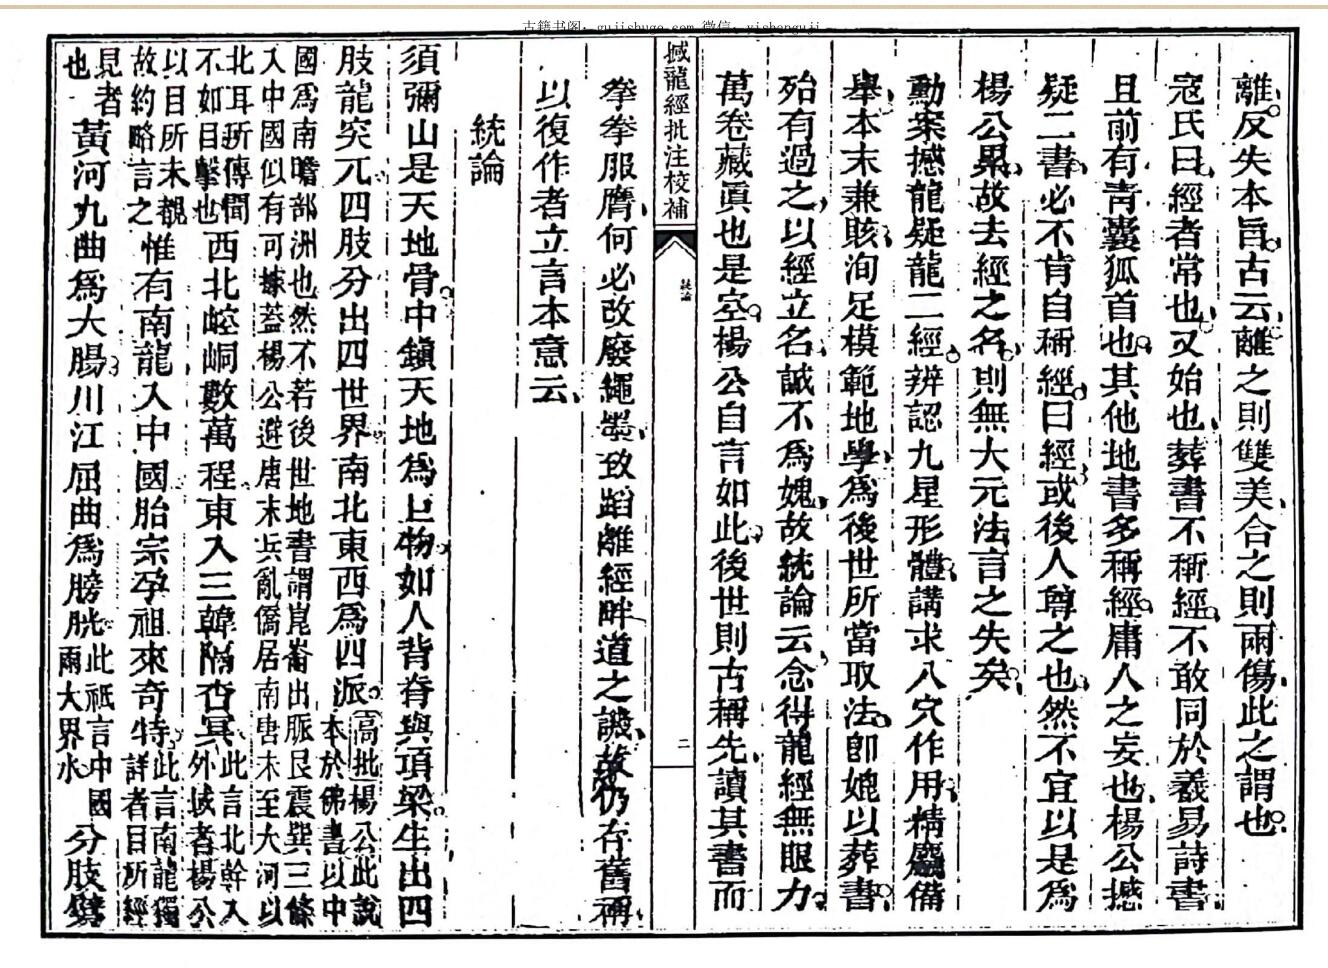 古籍书阁：gujishuge.com 微信：yishenguji
離反失本旨古云離之則雙美合之則兩傷此之謂也
寇氏曰經者常也又始也葬書不稱經不敢同於羲易詩書
且前有青囊狐首也其他地書多稱經庸人之妄也楊公撼
疑二書必不肯自稱經曰經或後人尊之也然不宜以是爲
楊公累故去經之名則無大元法言之失矣
勳案撼龍疑龍二經辨認九星形體講求八穴作用精麤備
舉本末兼賅洵足模範地學爲後世所當取法卽媲以葬書
殆有過之以經立名誠不爲媿故統論云念得龍經無眼力
萬卷藏眞也是空楊公自言如此後世則古稱先讀其書而
撼龍經批注校補
統論
二
拳拳服膺何必改廢繩墨致蹈離經畔道之譏故仍存舊稱
以復作者立言本意云
統論
須彌山是天地骨中鎮天地爲巨物如人背脊與項梁生出四
肢龍突兀四肢分出四世界南北東西爲四派
高批楊公此說
本於佛書以中
國爲南瞻部洲也然不若後世地書謂崑崙出脈艮震巽三條
入中國似有可據蓋楊公避唐末兵亂僑居南唐未至大河以
北耳所傳聞
不如目擊也
西北崆峒數萬程東入三韓隔杳冥
此言北幹入
外域者楊公
以目所未覩
故約略言之
惟有南龍入中國胎宗孕祖來奇特
此言南龍獨
詳者目所經
見者
也
黃河九曲爲大腸川江屈曲爲膀胱
此祇言中國
兩大界水
分肢擘